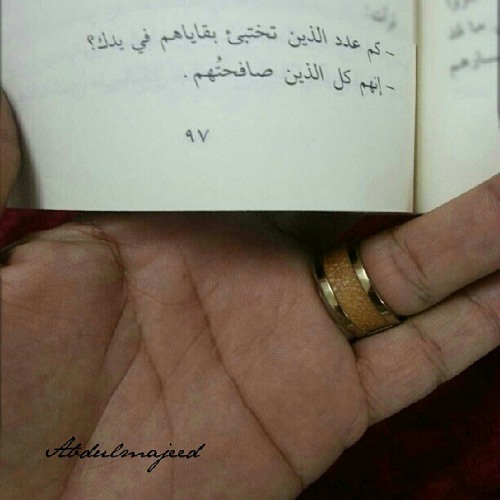 - كم عدد الذين تختبئ بقاياهم في يدك؟
- إنهم كل الذين صافحتُهم.
٩٧
Abdulmajeed